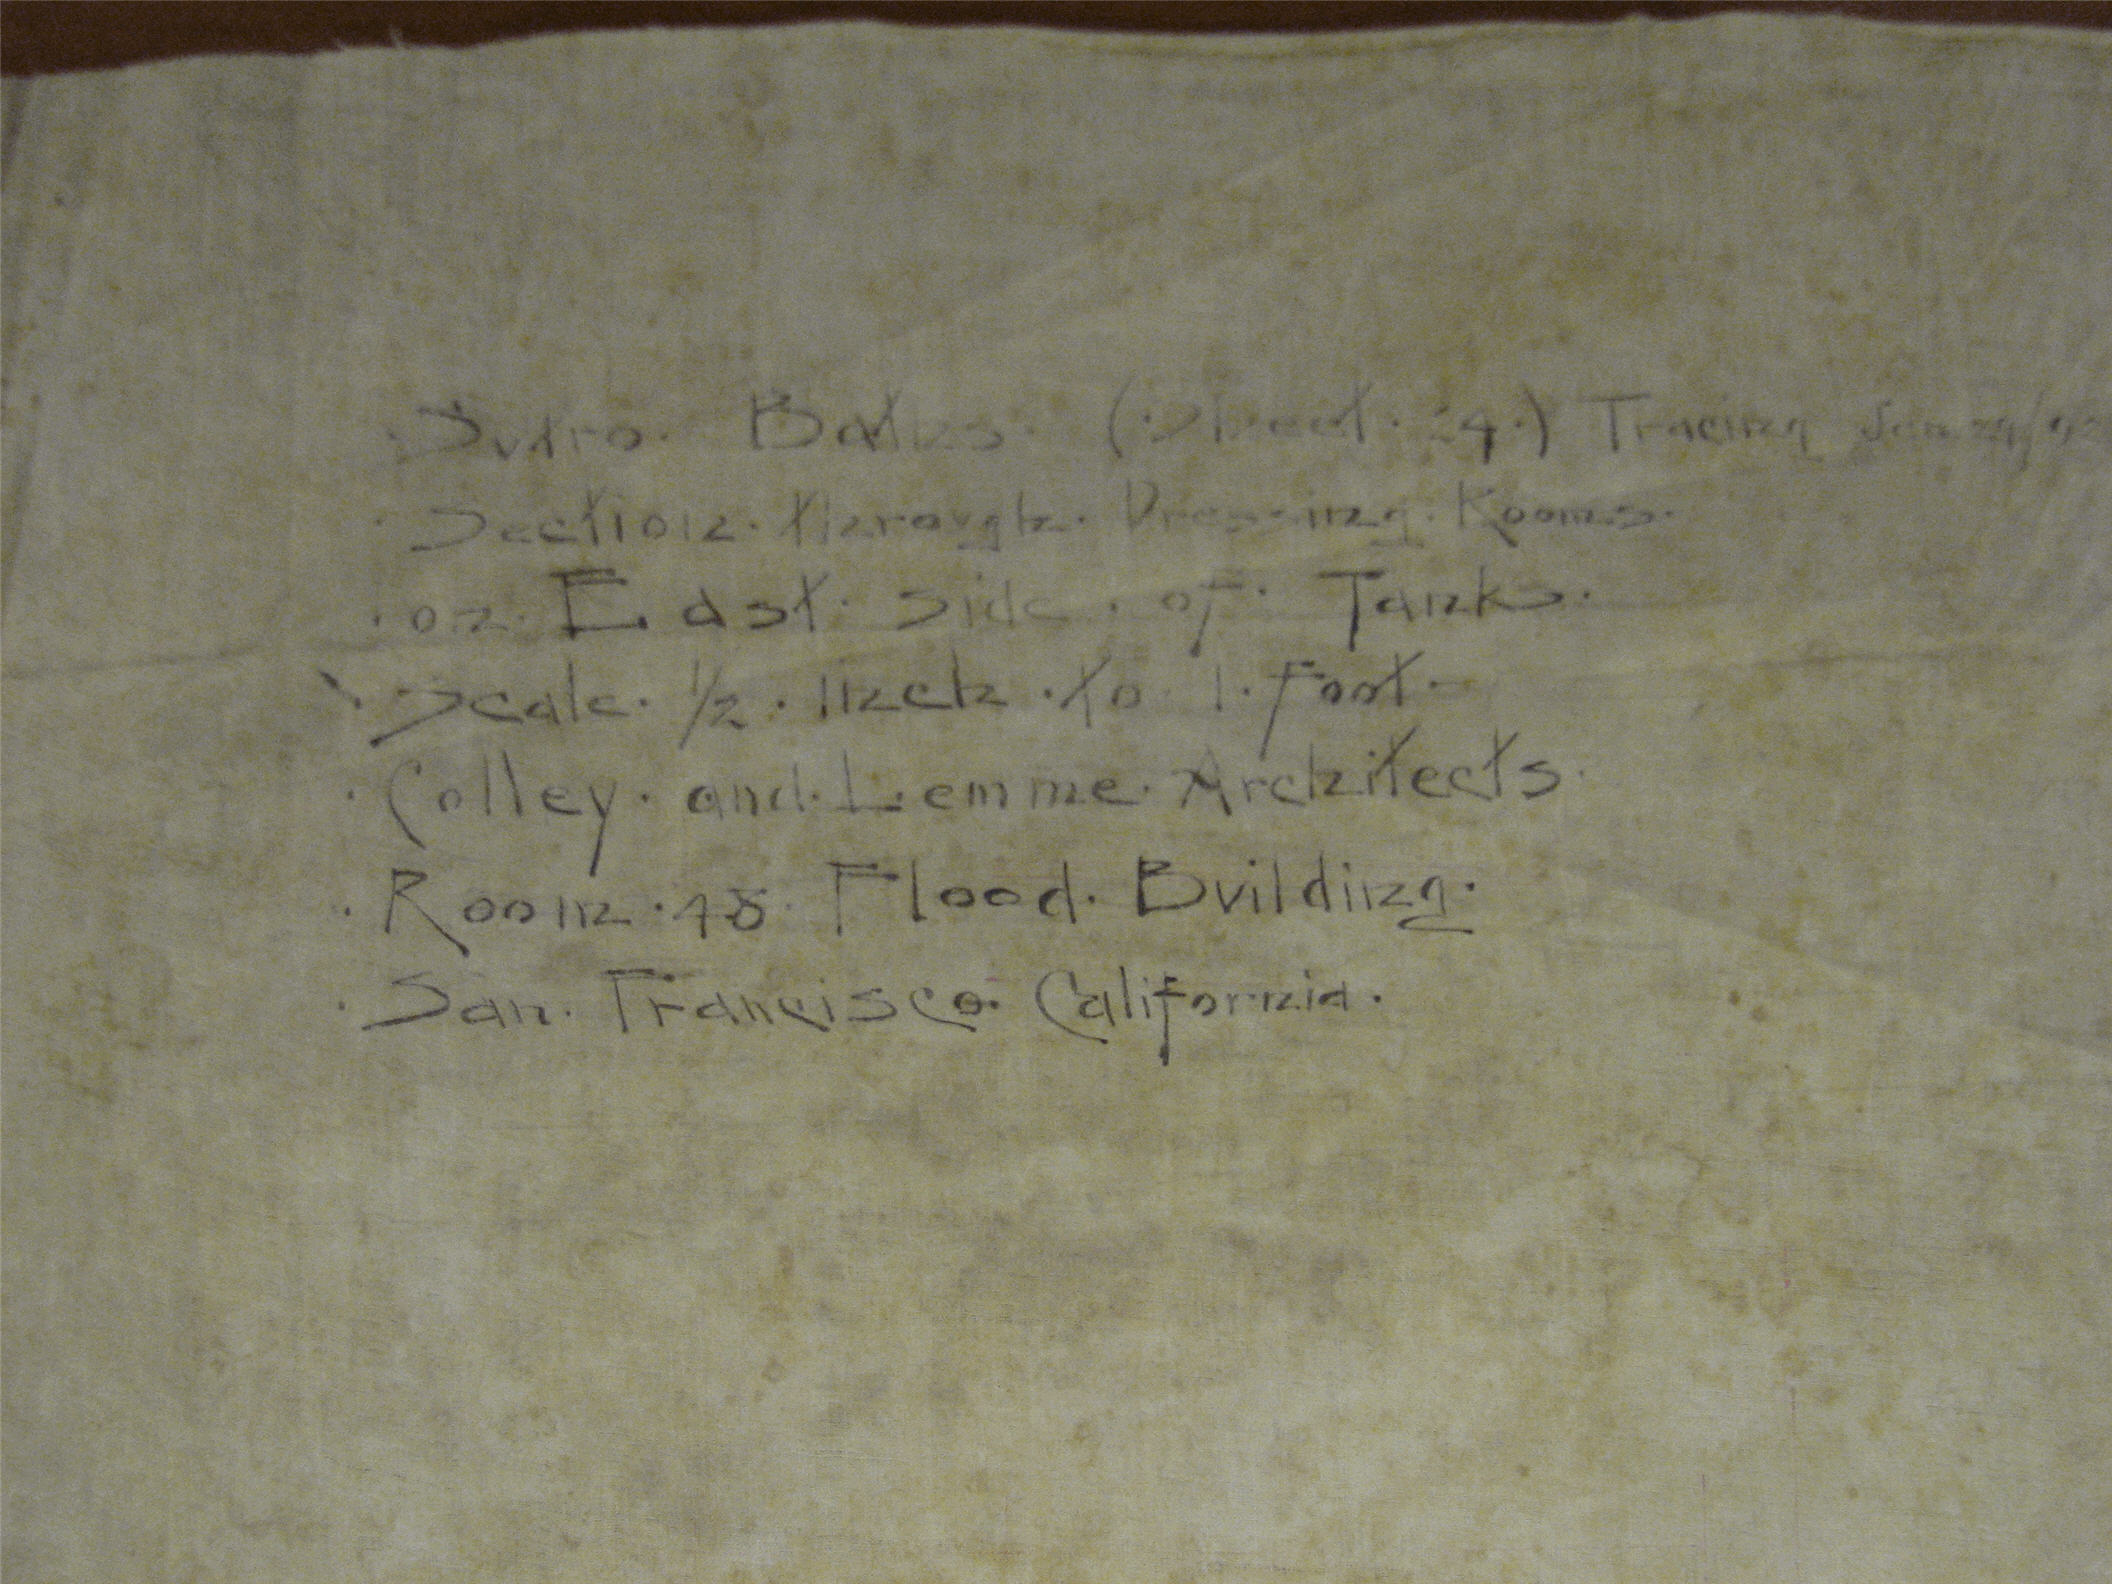 ·Sutro· Baths· (·Sheet· 24·) Tracing Jan
·Section· through· Dressing· Rooms·
·on· East· Side· of· Tanks·
·Scale· 1/2· Inch ·to· 1· Foot·
·Colley· and· Lemme· Architects·
·Room ·48· Flood· Building·
·San· Francisco· California·